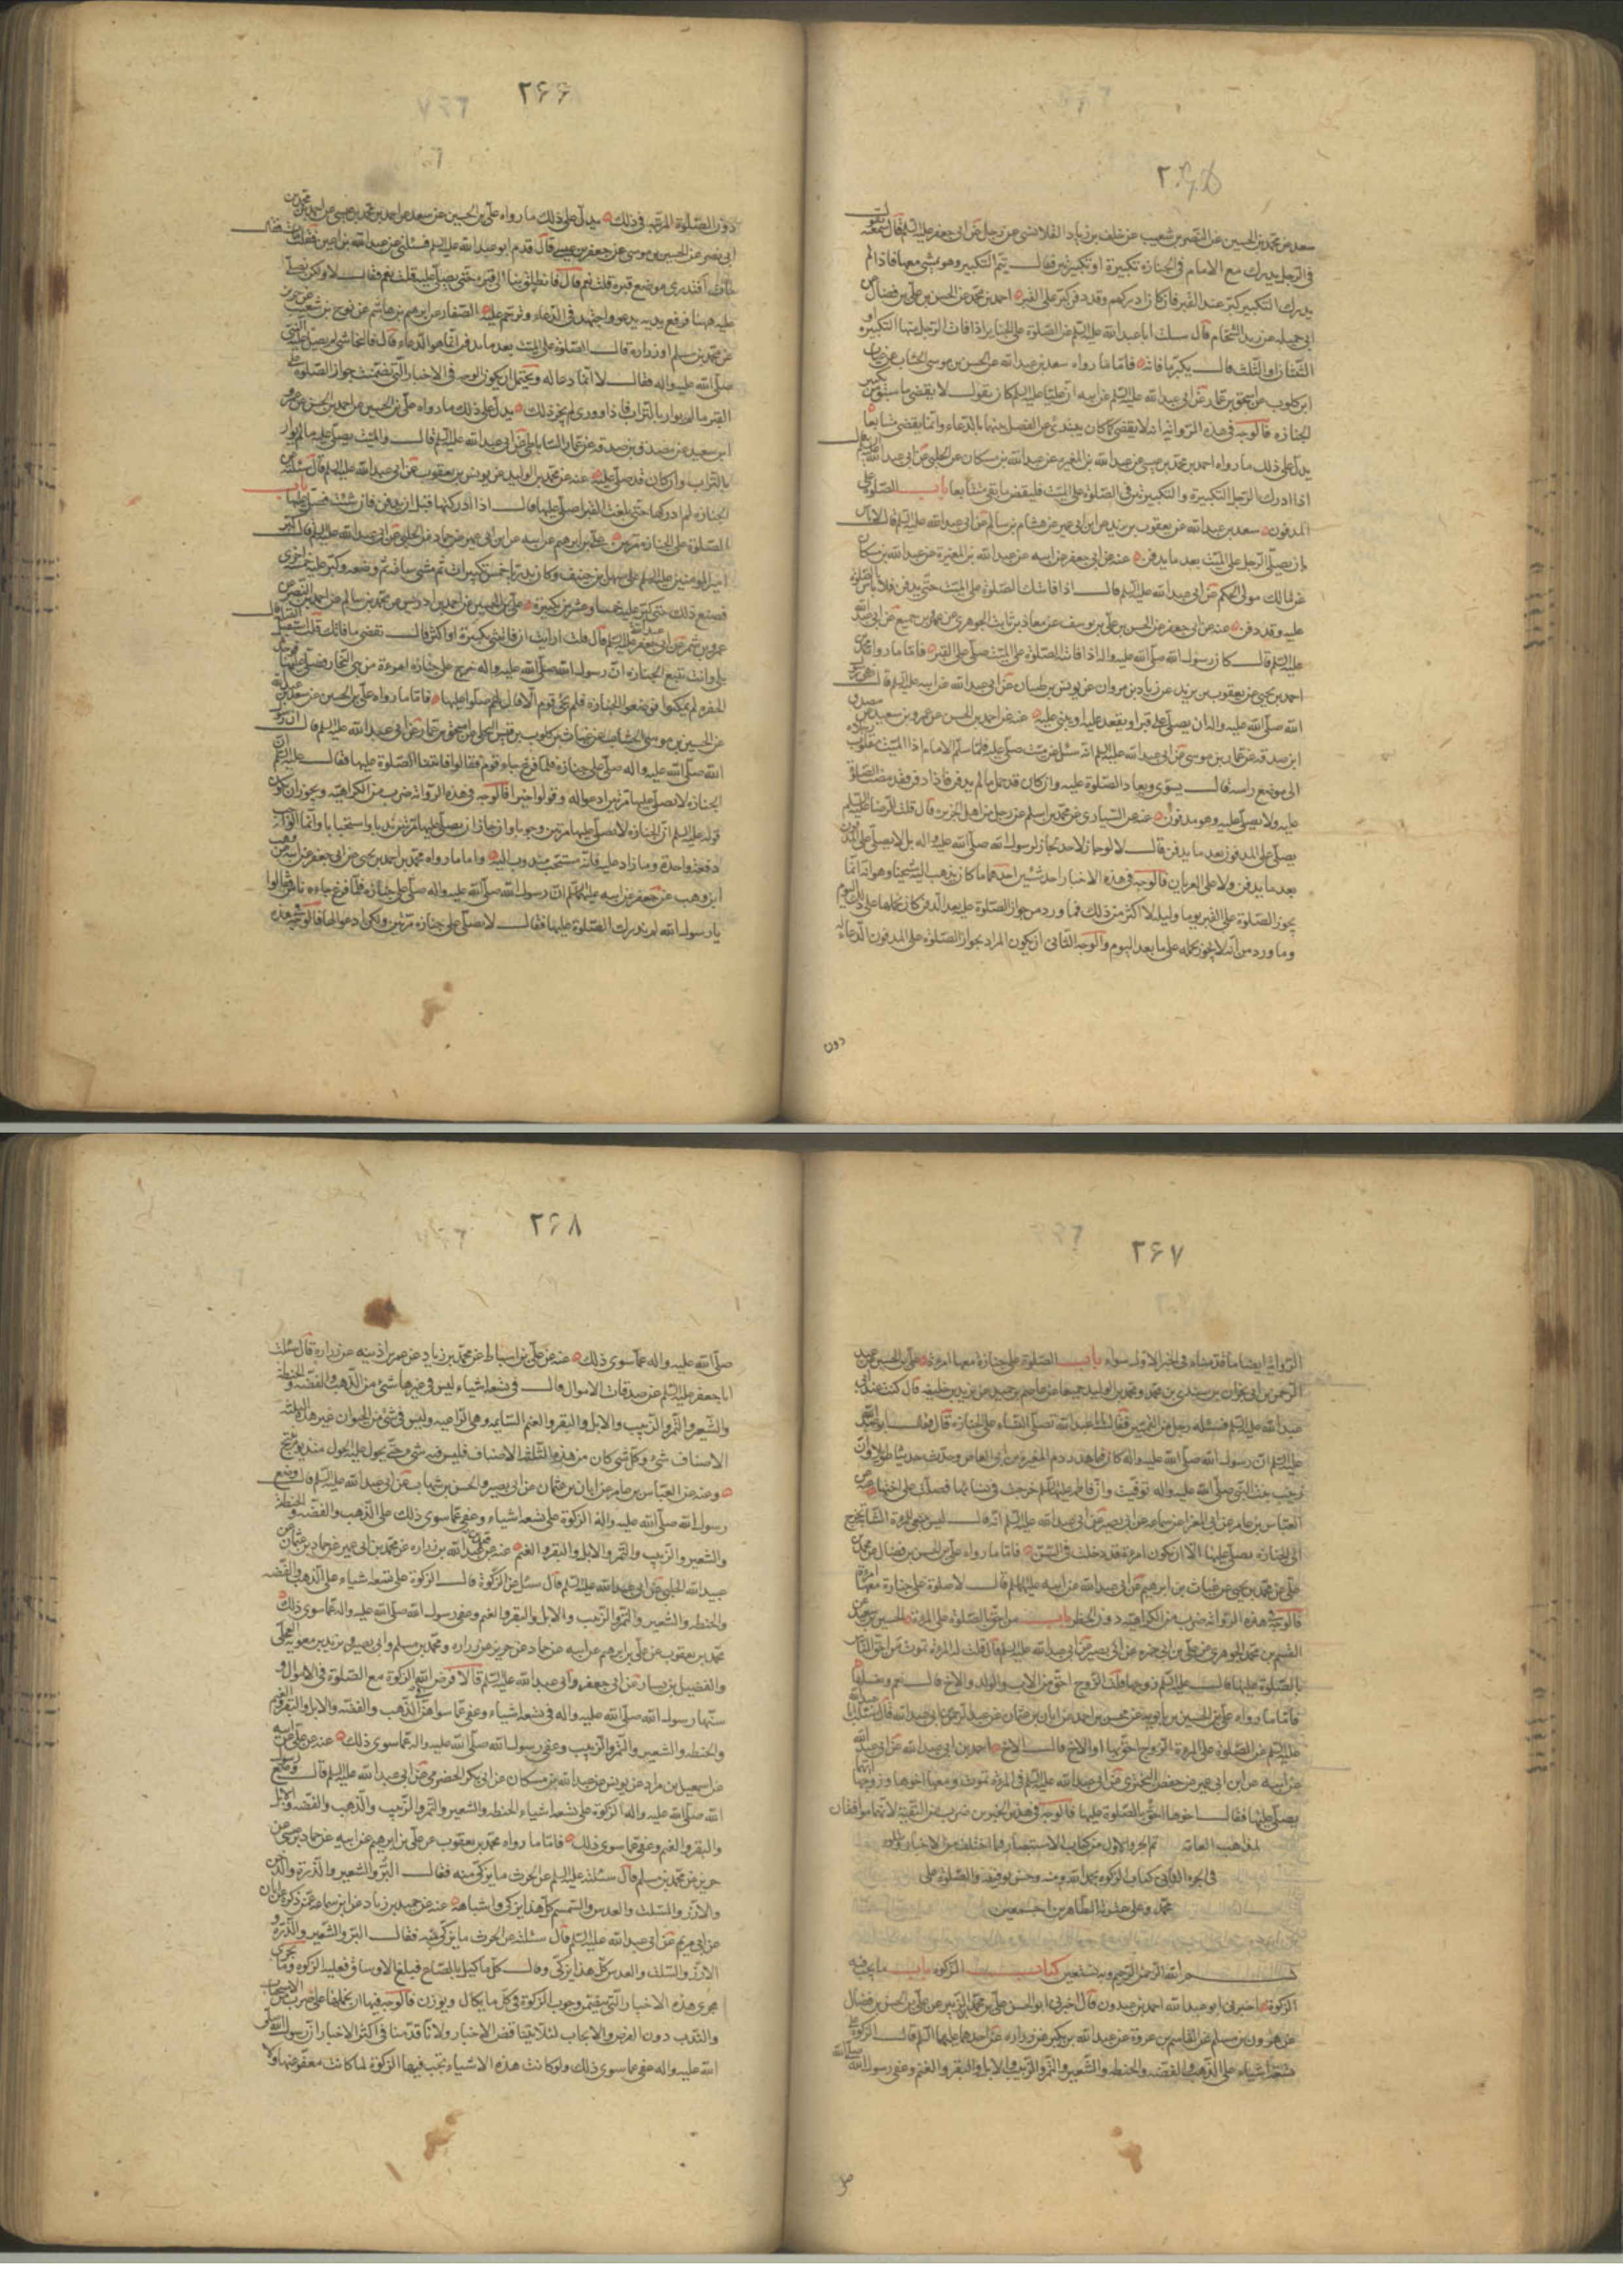 ۲۶۵
سعد عن محمد بن الحسين عن النضر بن شعيب عن خلف بن زياد القلانسي عن رجل عن ابي جعفر عليه السلم قال سمعته يقول
في الرجل يدرك مع الامام في الجنازه تكبيرة او تكبيرتين فقال يتم التكبير وهو يمشي معها فاذا لم
يدرك التكبير كبر عند القبر فان كان ادركهم وقد دفن كبر على القبر احمد بن محمد عن الحسن بن علي بن فضال عن
ابي جميله عن زيد الشحام قال سئلت ابا عبد الله عليه السلم عن الصلوة على الجنايز اذا فات الرجل منها التكبيرة او
الثنتان او الثلث قال يكبر ما فاته فاما ما رواه سعد بن عبد الله عن الحسن بن موسى الخشاب عن غياث
ابن كلوب عن اسحق بن عمار عن ابي عبد الله عليه السلم عن ابيه ان عليا عليه السلم كان يقول لا يقضى ما سبق من تكبير
الجنازه فالوجه في هذه الرواية انه لا يقضى كما كان يبتدئ من الفصل بينها بالدعاء وانما يقضى متتابعا
يدل على ذلك ما رواه احمد بن محمد بن عيسى عن عبد الله بن المغيره عن عبد الله بن مسكان عن الحلبي عن ابي عبد الله عليه السلم انه قال
اذا ادرك الرجل التكبيرة والتكبيرتين في الصلوة على الميت فليقض ما بقي متتابعا باب الصلوة على
المدفون سعد بن عبد الله عن يعقوب بن يزيد عن ابن ابي عمير عن هشام بن سالم عن ابي عبد الله عليه السلم قال لا باس
بان يصلي الرجل على الميت بعد ما يدفن عنه عن ابي جعفر عن ابيه عن عبد الله بن المغيرة عن عبد الله بن مسكان
عن مالك مولى الحكم عن ابي عبد الله عليه السلم قال اذا فاتتك الصلوة على الميت حتى يدفن فلا باس بالصلوة
عليه وقد دفن عنه عن ابي جعفر عن الحسن بن علي بن يوسف عن معاذ بن ثابت الجوهري عن عمرو بن جميع عن ابي عبد الله
عليه السلم قال كان رسول الله صلى الله عليه واله اذا فاتته الصلوة على الميت صلى على القبر فاما ما رواه محمد بن
احمد بن يحيى عن يعقوب بن يزيد عن زياد بن مروان عن يونس بن ظبيان عن ابي عبد الله عن ابيه عليه السلم قال نهى رسول
الله صلى الله عليه واله ان يصلى على قبر او يقعد عليه او يبنى عليه عنه عن احمد بن الحسن عن عمرو بن سعيد عن مصدق
ابن صدقه عن عمار بن موسى عن ابي عبد الله عليه السلم انه سئل عن ميت صلي عليه فلما سلم الامام اذا الميت مقلوب رجلاه
الى موضع راسه قال يسوى ويعاد الصلوة عليه وان كان قد حمل ما لم يدفن فاذا دفن فقد مضت الصلوة
عليه ولا يصلى عليه وهو مدفون عنه عن السياري عن محمد بن اسلم عن رجل من اهل الجزيرة قال قلت للرضا عليه السلم
يصلى على المدفون بعد ما يدفن قال لا لو جاز لاحد لجاز لرسول الله صلى الله عليه واله بل لا يصلى على المدفون
بعد ما يدفن ولا على العريان فالوجه في هذه الاخبار احد شيئين احدهما ما كان يذهب اليه شيخنا وهو انه انما
يجوز الصلوة على القبر يوما وليله لا اكثر من ذلك فما ورد من جواز الصلوة عليه بعد الدفن كان محمولا على ذلك اليوم
وما ورد من انه لا يجوز نحمله على ما بعد اليوم والوجه الثاني ان يكون المراد بجواز الصلوة على المدفون الدعاء له
دون
۲۶۶
دون الصلوة المرتبه في ذلك يدل على ذلك ما رواه علي بن الحسين عن سعد عن احمد بن محمد بن عيسى عن احمد بن محمد بن
ابي نصر عن الحسين بن موسى عن جعفر بن عيسى قال قدم ابو عبد الله عليه السلم فسئلني عن عبد الله بن اعين فقلت مات فقال
مات افتدري موضع قبره قلت نعم قال فانطلق بنا الى قبره حتى نصلي عليه قلت نعم فقال لا ولكن نصلي
عليه ههنا فرفع يديه يدعو واجتهد في الدعاء وترحم عليه الصفار عن ابرهيم بن هاشم عن نوح بن شعيب عن حريز
عن محمد بن مسلم او زراره قال الصلوة على الميت بعد ما يدفن انما هو الدعاء قال قلت فالنجاشي لم يصل عليه النبي
صلى الله عليه واله فقال لا انما دعا له ويحتمل ان يكون الوجه في الاخبار التي تضمنت جواز الصلوة على
القبر ما لم يوار بالتراب فاذا ووري لم يجز ذلك يدل على ذلك ما رواه علي بن الحسين عن احمد بن الحسن عن عمرو
ابن سعيد عن مصدق بن صدقه عن عمار الساباطي عن ابي عبد الله عليه السلم قال والميت يصلى عليه ما لم يوار
بالتراب وان كان قد صلي عليه عنه عن محمد بن الوليد عن يونس بن يعقوب عن ابي عبد الله عليه السلم قال سئلته عن
الجنازه لم ادركها حتى بلغت القبر اصلي عليها قال اذا ادركتها قبل ان تدفن فان شئت فصل عليها باب
الصلوة على الجنازه مرتين علي بن ابرهيم عن ابيه عن ابن ابي عمير عن حماد عن الحلبي عن ابي عبد الله عليه السلم قال كبر
امير المومنين عليه السلم على سهل بن حنيف وكان بدريا خمس تكبيرات ثم مشى ساعة ثم وضعه وكبر عليه خمسة اخرى
فصنع ذلك حتى كبر عليه خمسا وعشرين تكبيرة علي بن الحسين عن احمد بن ادريس عن محمد بن سالم عن احمد بن النضر عن
عمرو بن شمر عن ابي جعفر عليه السلم قال قلت ارايت ان فاتتني تكبيرة او اكثر قال تقضي ما فاتك قلت استقبل القبله قال
بلى وانت تتبع الجنازه ان رسول الله صلى الله عليه واله خرج على جنازه امرءة من بني النجار فصلى عليها فوجد
الحفره لم يمكنوا فوضعوا الجنازه فلم يجئ قوم الا قال لهم صلوا عليها فاما ما رواه علي بن الحسين عن سعد بن عبد الله
عن الحسين بن موسى الخشاب عن غياث بن كلوب بن قيس البجلي عن اسحق بن عمار عن ابي عبد الله عليه السلم قال ان رسول
الله صلى الله عليه واله صلى على جنازه فلما فرغ جاء قوم فقالوا فاتتنا الصلوة عليها فقال عليه السلم ان
الجنازه لا يصلى عليها مرتين ادعوا له وقولوا خيرا فالوجه في هذه الروايه ضرب من الكراهيه ويجوز ان يكون
قوله عليه السلم ان الجنازه لا يصلى عليها مرتين وجوبا وان جاز ان يصلى عليها مرتين ندبا واستحبابا وانما الواجب
دفعة واحدة وما زاد عليه فانه مستحب مندوب اليه واما ما رواه محمد بن احمد بن يحيى عن ابي جعفر عن ابيه عن وهب
ابن وهب عن جعفر عن ابيه عليهما السلم ان رسول الله صلى الله عليه واله صلى على جنازه فلما فرغ جاءه ناس فقالوا
يا رسول الله لم ندرك الصلوة عليها فقال لا يصلى على جنازه مرتين ولكن ادعوا لها فالوجه في هذه
۲۶۷
الروايه ايضا ما قدمناه في الخبر الاول سواء باب الصلوة على جنازة معها امرءة علي بن الحسين عن عبد
الرحمن بن ابي نجران عن سندي بن محمد ومحمد بن الوليد جميعا عن عاصم بن حميد عن يزيد بن خليفه قال كنت عند ابي
عبد الله عليه السلم فسئله رجل من القميين فقال يا ابا عبد الله تصلي النساء على الجنازه قال فقال ابو عبد الله
عليه السلم ان رسول الله صلى الله عليه واله كان فيما هدر دم المغيرة بن ابي العاص وحدث حديثا طويلا وان
زينب بنت النبي صلى الله عليه واله توفيت وان فاطمه عليها السلم خرجت في نسائها فصلت على اختها عنه عن
العباس بن عامر عن ابي المغرا عن سماعه عن ابي بصير عن ابي عبد الله عليه السلم انه قال ليس ينبغي للمرءة الشابة تخرج
الى الجنازه تصلي عليها الا ان تكون امرءة قد دخلت في السن فاما ما رواه علي بن الحسن بن فضال عن محمد بن
علي عن محمد بن يحيى عن غياث بن ابرهيم عن ابي عبد الله عن ابيه عليهما السلم قال لا صلوة على جنازة معها امرءة
فالوجه في هذه الروايه ضرب من الكراهيه دون الحظر باب من احق بالصلوة على المرءة الحسين بن سعيد عن
القسم بن محمد الجوهري عن علي بن ابي حمزه عن ابي بصير عن ابي عبد الله عليه السلم قال قلت له المرءة تموت من احق الناس
بالصلوة عليها قال عليه السلم زوجها قلت الزوج احق من الاب والولد والاخ قال نعم ويغسلها
فاما ما رواه علي بن الحسين بن بابويه عن محسن بن احمد عن ابان بن عثمان عن عبد الرحمن بن ابي عبد الله قال سئلت ابا عبد الله
عليه السلم عن الصلوة على المرءة الزوج احق بها او الاخ قال الاخ احمد بن ابي عبد الله عن ابي عبد الله
عن ابيه عن ابن ابي عمير عن حفص البختري عن ابي عبد الله عليه السلم في المرءة تموت ومعها اخوها وزوجها ايهما
يصلي عليها فقال اخوها احق بالصلوة عليها فالوجه في هذين الخبرين ضرب من التقية لانهما موافقان
لمذاهب العامه تم الجزو الاول من كتاب الاستبصار فيما اختلف من الاخبار ويتلوه
في الجزء الثاني كتاب الزكوه بحمد الله ومنه وحسن توفيقه والصلوة على
محمد وعلى عترته الطاهرين اجمعين
بسم الله الرحمن الرحيم وبه نستعين كتاب الزكوه باب ما يجب فيه
الزكوة اخبرني ابو عبد الله احمد بن عبدون قال اخبرني ابو الحسن علي بن محمد بن الزبير عن علي بن الحسن بن فضال
عن هرون بن مسلم عن القاسم بن عروة عن عبد الله بن بكير عن زراره عن احدهما عليهما السلم قال الزكوة على
تسعة اشياء على الذهب والفضه والحنطه والشعير والتمر والزبيب والابل والبقر والغنم وعفى رسول الله صلى الله
صلى
۲۶۸
صلى الله عليه واله عما سوى ذلك عنه عن علي بن اسباط عن محمد بن زياد عن عمر بن اذينه عن زراره قال سئلت
ابا جعفر عليه السلم عن صدقات الاموال قال في تسعة اشياء ليس في غيرها شئ من الذهب والفضه والحنطه
والشعير والتمر والزبيب والابل والبقر والغنم السايمه وهي الراعيه وليس في شئ من الحيوان غير هذه الثلثه
الاصناف شئ وكل شئ كان من هذه الثلثة الاصناف فليس فيه شئ حتى يحول عليه الحول منذ يوم ينتج
وعنه عن العباس بن عامر عن ابان بن عثمان عن ابي بصير والحسن بن شهاب عن ابي عبد الله عليه السلم قال وضع
رسول الله صلى الله عليه واله الزكوة على تسعة اشياء وعفى عما سوى ذلك على الذهب والفضه والحنطه
والشعير والزبيب والتمر والابل والبقر والغنم عنه عن محمد بن عبيد الله بن زراره عن محمد بن ابي عمير عن حماد بن عثمان عن
عبيد الله الحلبي عن ابي عبد الله عليه السلم قال سئل عن الزكوة قال الزكوة على تسعة اشياء على الذهب والفضه
والحنطه والشعير والتمر والزبيب والابل والبقر والغنم وعفى رسول الله صلى الله عليه واله عما سوى ذلك
محمد بن يعقوب عن علي بن ابرهيم عن ابيه عن حماد عن حريز عن زراره ومحمد بن مسلم وابي بصير وبريد بن معويه العجلي
والفضيل بن يسار عن ابي جعفر وابي عبد الله عليه السلم قالا فرض الله الزكوة مع الصلوة في الاموال و
سنها رسول الله صلى الله عليه واله في تسعة اشياء وعفى عما سواهن في الذهب والفضه والابل والبقر والغنم
والحنطه والشعير والتمر والزبيب وعفى رسول الله صلى الله عليه واله عما سوى ذلك عنه عن علي عن ابيه
عن اسمعيل بن مرار عن يونس عن عبد الله بن مسكان عن ابي بكر الحضرمي عن ابي عبد الله عليه السلم قال وضع رسول
الله صلى الله عليه واله الزكوة على تسعة اشياء الحنطه والشعير والتمر والزبيب والذهب والفضه والابل
والبقر والغنم وعفى عما سوى ذلك فاما ما رواه محمد بن يعقوب عن علي بن ابرهيم عن ابيه عن حماد بن عيسى عن
حريز عن محمد بن مسلم قال سئلته عليه السلم عن الحرث ما يزكى منه فقال البر والشعير والذرة والدخن
والارز والسلت والعدس والسمسم كل هذا يزكى واشباهه عنه عن حميد بن زياد عن ابن سماعه عمن ذكره عن ابان
عن ابي مريم عن ابي عبد الله عليه السلم قال سئلته عن الحرث ما يزكى منه فقال البر والشعير والذرة و
الارز والسلت والعدس كل هذا يزكى وقال كل ما كيل بالصاع فبلغ الاوساق فعليه الزكوه وما يجري
مجرى هذه الاخبار التي يتضمن وجوب الزكوة في كل ما يكال ويوزن فالوجه فيها ان نحملها على ضرب من الاستحباب
والندب دون الفرض والايجاب لئلا يتناقض الاخبار ولانا قدمنا في اكثر الاخبار ان رسول الله صلى
الله عليه واله عفى عما سوى ذلك ولو كانت هذه الاشياء يجب فيها الزكوة لما كانت معفوا عنها ولا